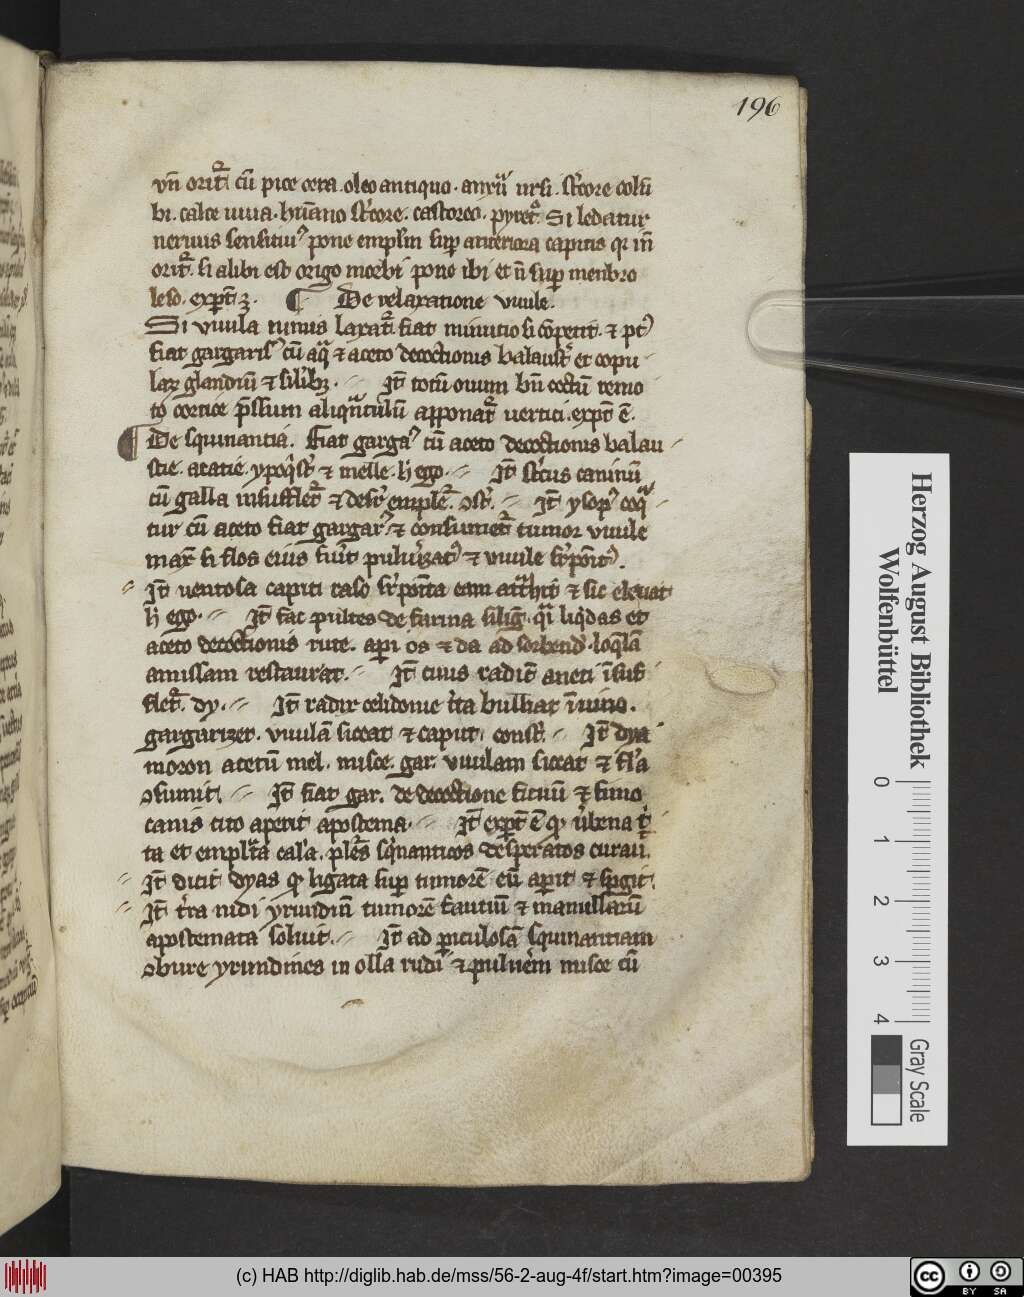 196
vn̄ orit᷑ cū pice cera . oleo antiquo . anxū ursi . st̄core colū
bi . calce uiua . hūano st̄core . castoreo . pyret᷑ . Si ledatur
neruus sensitiu᷒ pone emplm̄ sup̄ anteriora capitis
orit᷑ . si alibi est origo morbi pone ibi et n̄ sup̄ menbro
leso . exp̄t ꝫ . ¶ De relaxatione vuule .
Si vuula nimis laxat᷑ . fiat minutio si cōpetit . ⁊ pt᷒
fiat gargaris᷒ cū aq̄ ⁊ aceto decoctionis balaust᷑ et copu
laꝝ glandiū ⁊ silibꝫ . It̄ totū ouum bn̄ coctū remo
to cortice p̄ssum aliqn̄tulū apponat᷑ uertici . exp̄t ē .
De squinantia . Fiat garga᷒ cū aceto decoctionis balau
stie . acatie . ypoq̄st᷑ ⁊ melle . h̄ ego . It̄ st̄cus caninū
cū galla insufflet᷑ ⁊ desr̄ emplr̄ . ost᷑ . It̄ ysop᷒ coq̄
tur cū aceto fiat gargar᷒ ⁊ consumet᷑ tumor vuule
mar̄ si flos eius fūit puluīzat᷒ ⁊ vuule sr̄pōit᷒ .
It̄ uentosa capiti raso sr̄poīta eam att̄hit ⁊ sic eleuat
h̄ ego . It̄ fac pultes de farina silig᷑ . liq̄das et
aceto decoctionis rute . api os ⁊ da ad sorbend᷒ . loq̄lā
amissam restaurat . It̄ ciuis radic̄ aneti īsuf
flet᷑ . dy . It̄ radix celidonie t̄ta bulliat ī uino .
gargarizet . vuulā siccat ⁊ caput . const᷑ . It̄ dya
moron acetū mel . misce . gar . vuulam siccat ⁊ fl̄a
ↄsumit . It̄ fiat gar . de decoctione ficuū ⁊ fimo
canis cito aperit apostema . It̄ exp̄t ē ꝙ ūbena t̄
ta et emplr̄ta cal̄a . plēs sq̄nanticos desperatos curaū .
It̄ dicit dyas ꝙ ligata sup̄ tumorē eū ap̄it ⁊ sp̄git .
It̄ t̄ra nidi yrundinū tumorē fautiū ⁊ mamillarū
apostemata soluit . It̄ ad p̄iculosā squinantiam
ↄbure yrundines in olla rudi ⁊ puluēm misce cū
Herzog August Bibliothek
Wolfenbüttel
0 1 2 3 4
Gray Scale
(c) HAB http://diglib.hab.de/mss/56-2-aug-4f/start.htm?image=00395
cc BY SA